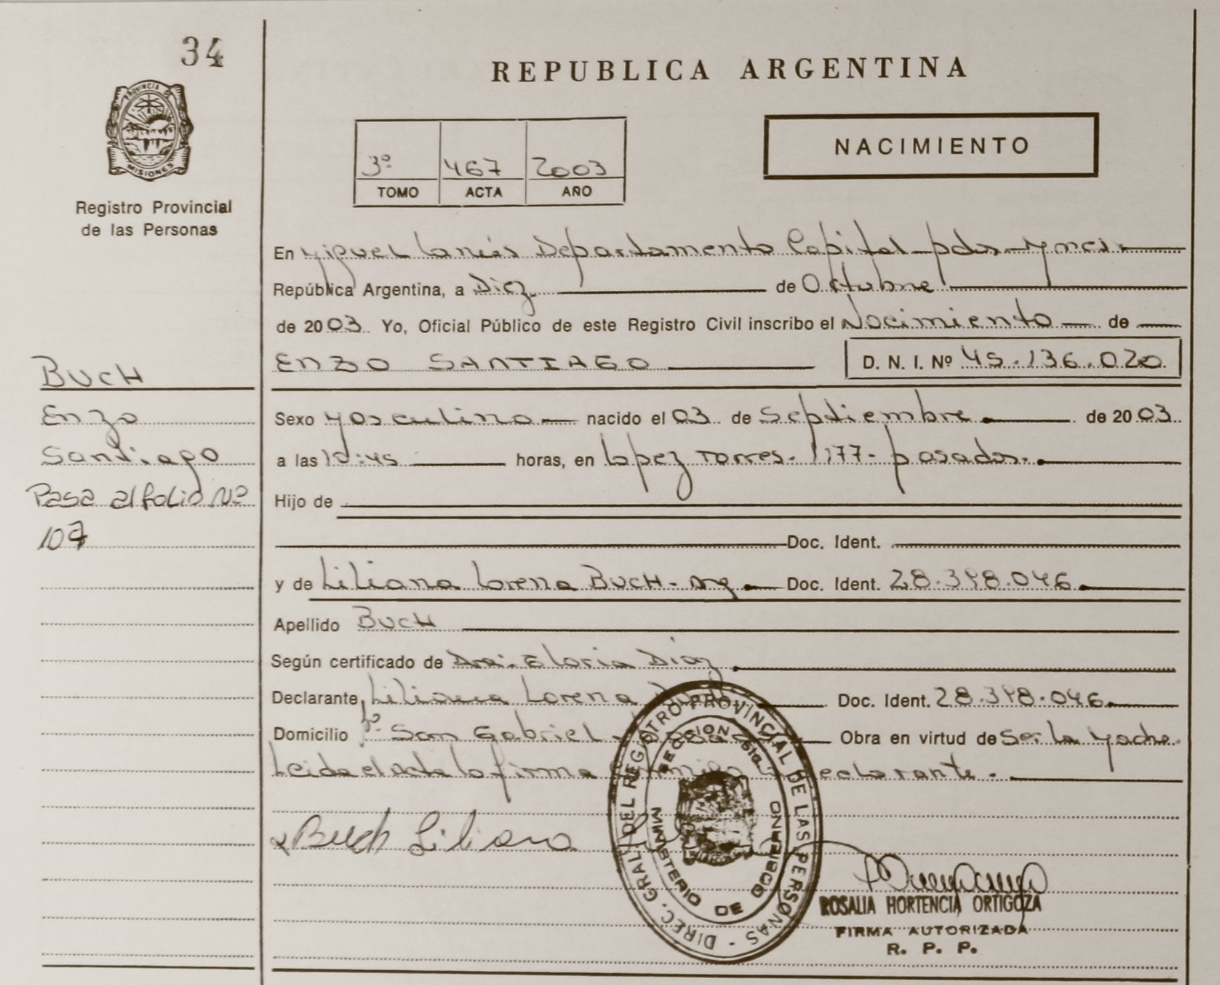 34
PROVINCIA DE MISIONES
Registro Provincial
de las Personas
REPUBLICA ARGENTINA
3º 467 2003
TOMO ACTA AÑO
NACIMIENTO
En Miguel Lanús Departamento Capital - pdas - Mnes.
República Argentina, a Diez de Octubre
de 2003 Yo, Oficial Público de este Registro Civil inscribo el Nacimiento de
ENZO SANTIAGO D. N. I. Nº 45.136.020
BUCH
Enzo
Santiago
Pasa al folio Nº
107
Sexo Masculino nacido el 03 de Septiembre de 2003
a las horas, en Lopez Torres - 1177 - posadas.
Hijo de
Doc. Ident.
y de Liliana Lorena BUCH - Arg Doc. Ident. 28.398.046
Apellido BUCH
Según certificado de Dra: Gloria Diaz
Declarante Liliana Lorena Doc. Ident. 28.398.046
Domicilio Bº San Gabriel - Obra en virtud de Ser la Madre.
Leida el acta la firma declarante.
Buch Liliana
DIREC. GRAL. DEL REGISTRO PROVINCIAL DE LAS PERSONAS
MINISTERIO DE GOBIERNO
ROSALIA HORTENCIA ORTIGOZA
FIRMA AUTORIZADA
R. P. P.